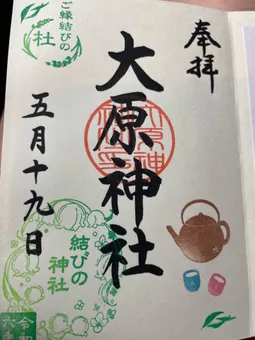 奉拝
大原神社
五月十九日
ご縁結びの
社
結びの
神社
令和
六年